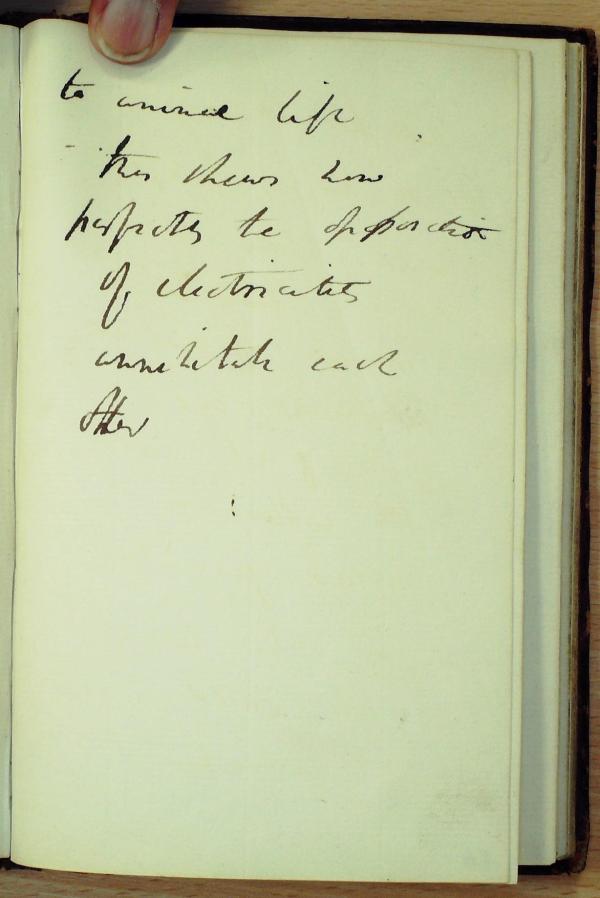 to animal life
- this shews how
perfectly the opposition
of electricities
annihilate each
other